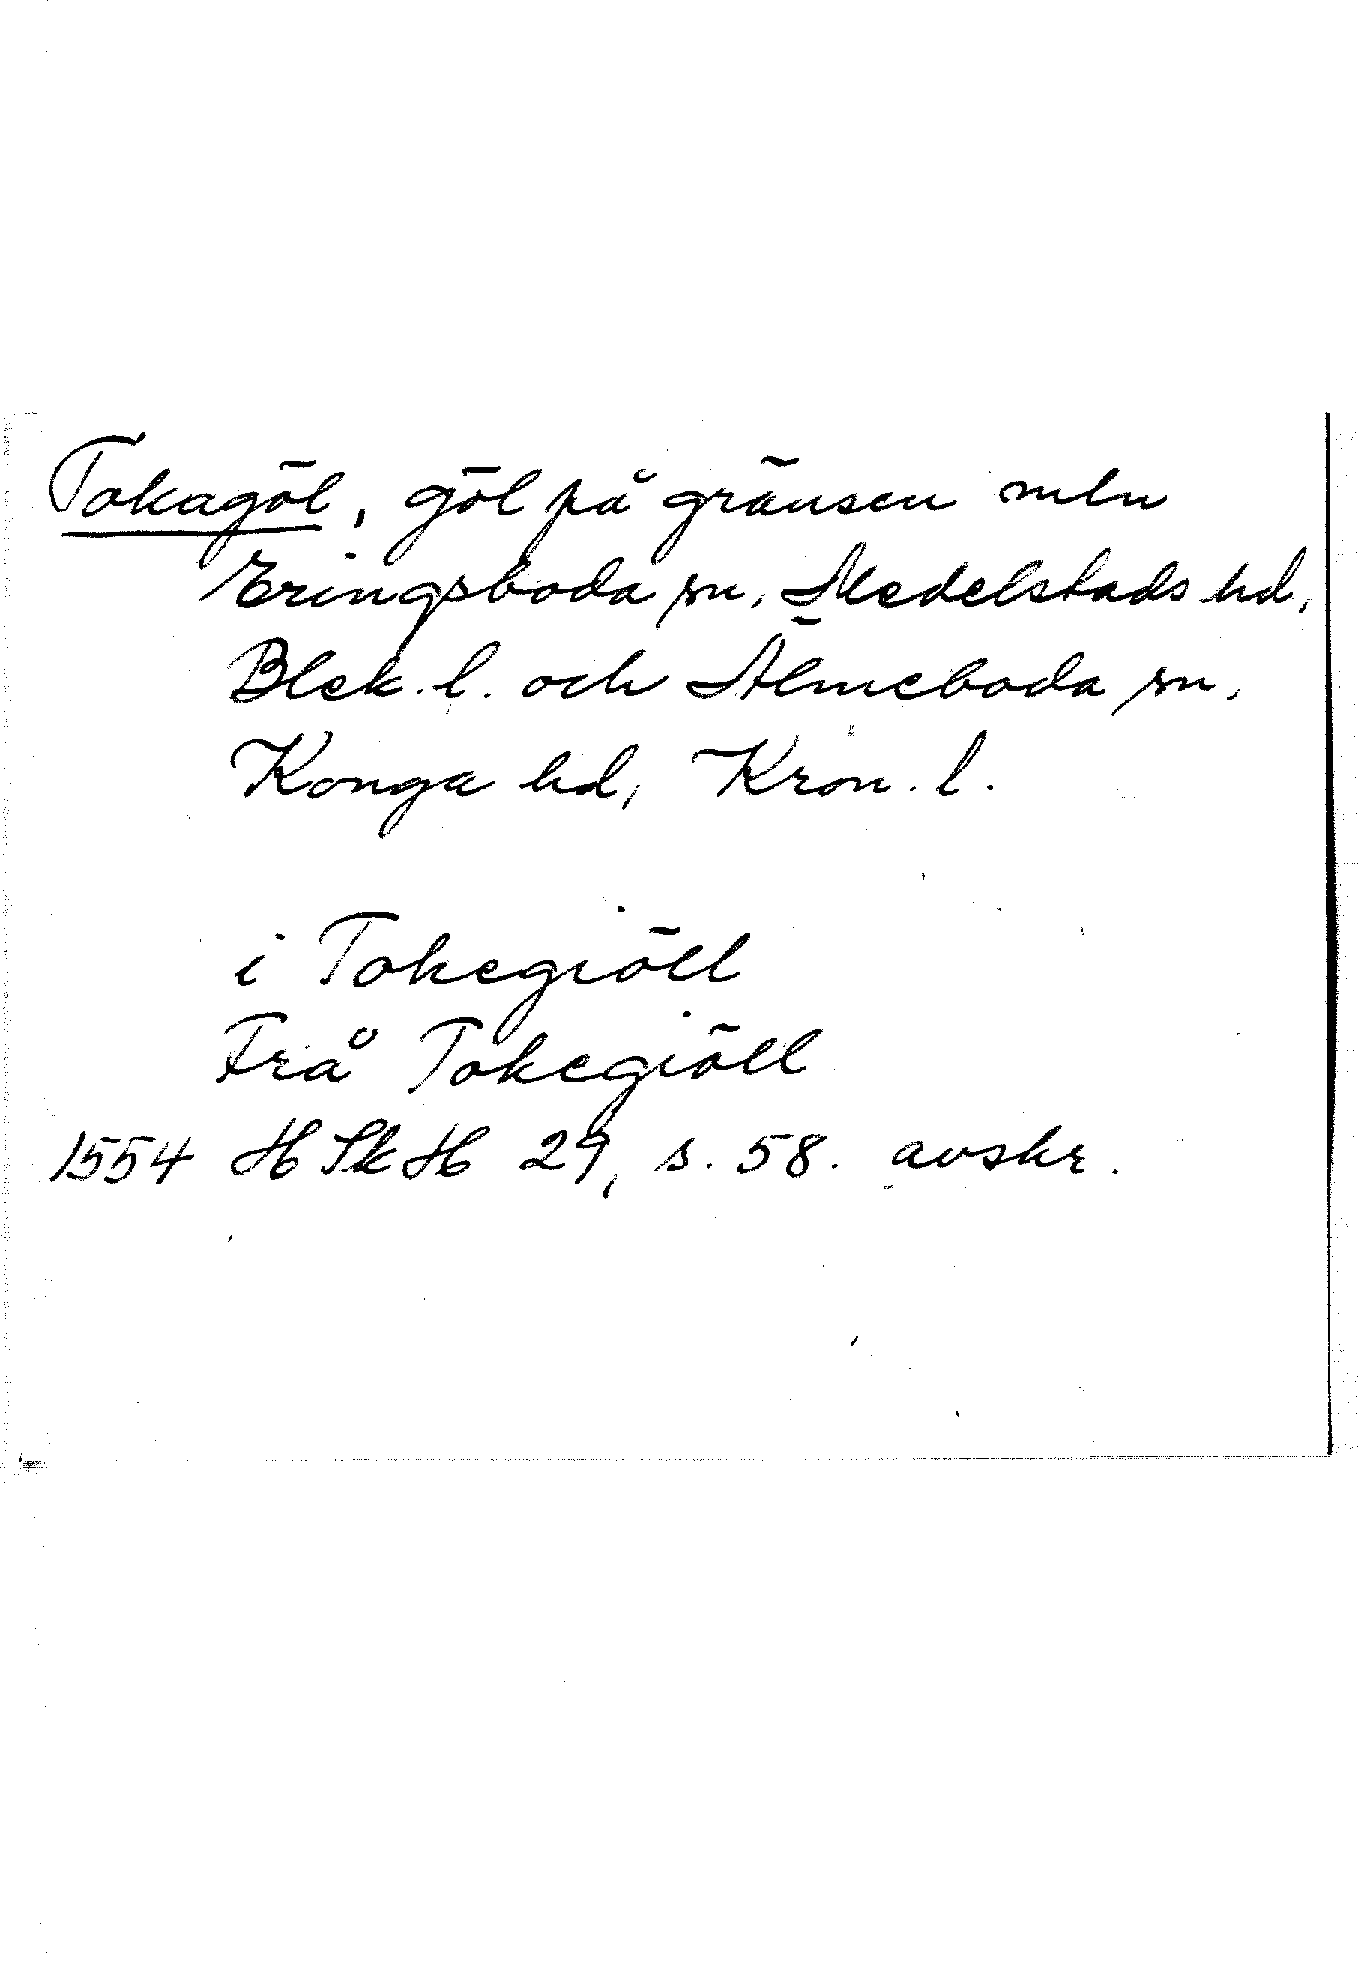 Tokagöl, göl på gränsen mln
Eringsboda sn, Medelstads hd,
Blek. l. och Älmeboda sn,
Konga hd, Kron. l.
i Tokegiöll
Frå Tokegiöll
1554 HSkH 29, s. 58. avskr.